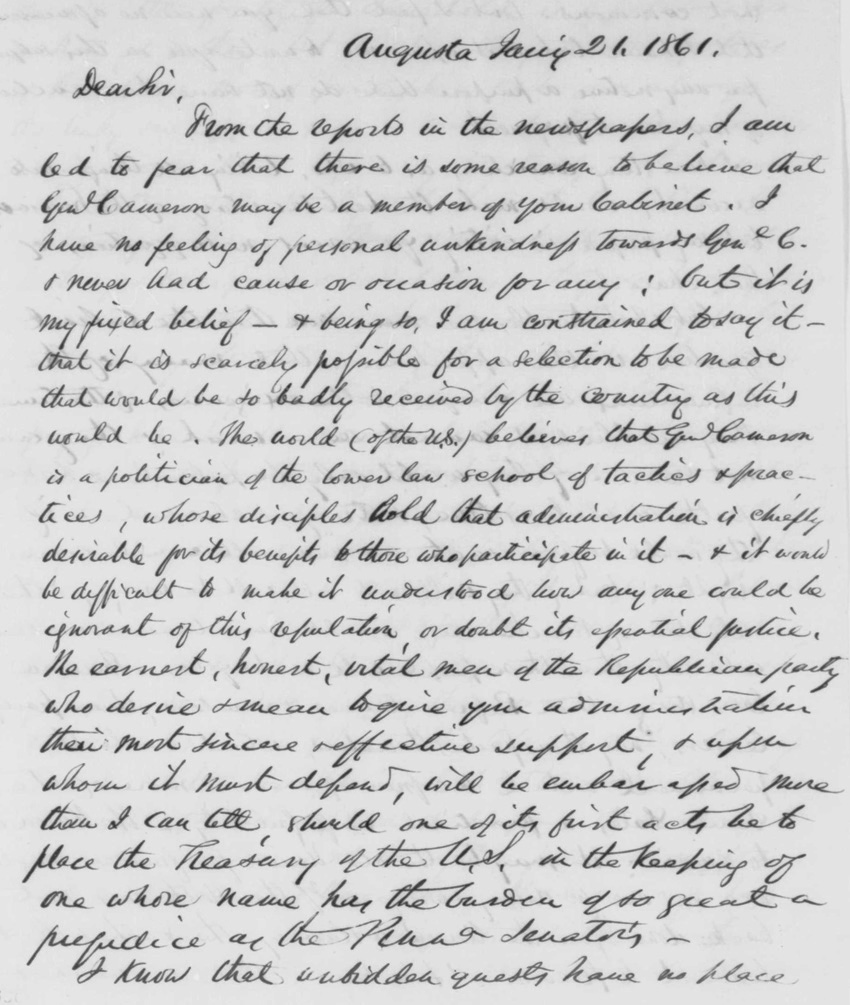 Augusta Jany 21. 1861.
Dear Sir,
From the reports in the newspapers, I am
led to fear that there is some reason to believe that
Genl Cameron may be a member of your Cabinet. I
have no feeling of personal unkindness towards Genl C.
& never had cause or occasion for any; but it is
my fixed belief — & being so, I am constrained to say it —
that it is scarcely possible for a selection to be made
that would be so badly received by the country as this
would be. The world (of the U.S.) believes that Genl Cameron
is a politician of the lower law school of tactics & prac-
tices, whose disciples hold that administration is chiefly
desirable for its benefits to those who participate in it — & it would
be difficult to make it understood how any one could be
ignorant of this reputation, or doubt its essential justice.
The earnest, honest, vital men of the Republican party
who desire & mean to give your administration
their most sincere & effective support, & upon
whom it must depend, will be embarrassed more
than I can tell, should one of its first acts be to
place the Treasury of the U.S. in the keeping of
one whose name has the burden of so great a
prejudice as the Penna Senator's —
I know that unbidden guests have no place